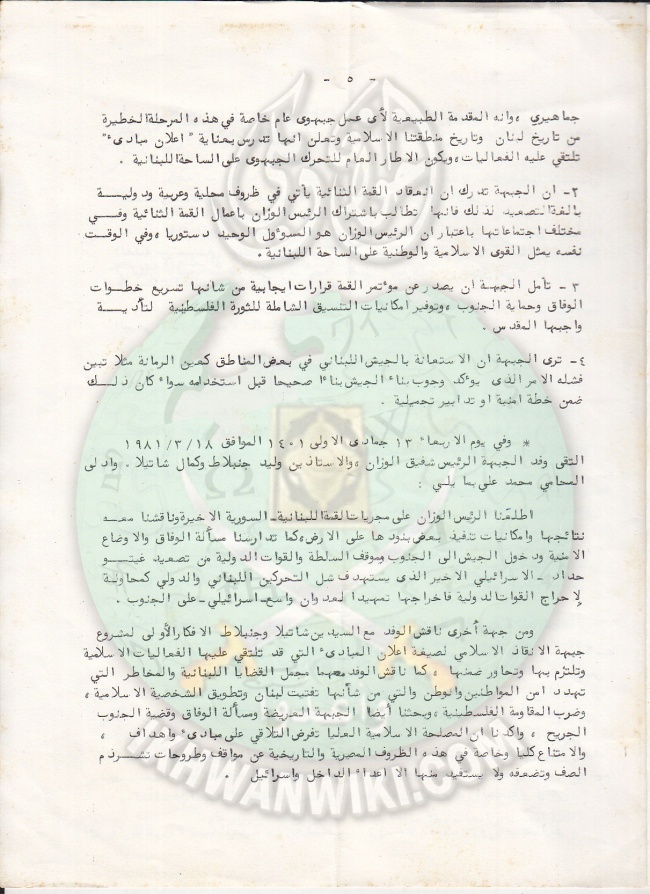 - ٥ -
جماهيري ، وانه المقدمة الطبيعية لأى عمل جبهوى عام خاصة في هذه المرحلة الخطيرة
من تاريخ لبنان وتاريخ منطقتنا الاسلامية وتعلن انها تدرس بعناية " اعلان مبادىء"
تلتقي عليه الفعاليات ، ويكون الاطار العام للتحرك الجبهوى على الساحة اللبنانية .
٢- ان الجبهة تدرك ان انعقاد القمة الثنائية يأتي في ظروف محلية وعربية ودوليـــة
بالغة التصعيد لذلك فانها تطالب باشتراك الرئيس الوزان باعمال القمة الثنائية وفـــي
مختلف اجتماعاتها باعتبار ان الرئيس الوزان هو المسؤول الوحيد دستوريا ، وفي الوقــت
نفسه يمثل القوى الاسلامية والوطنية على الساحة اللبنانية .
٣ - تأمل الجبهة ان يصدر عن مؤتمر القمة قرارات ايجابية من شانها تسريع خطــوات
الوفاق وحماية الجنوب ، وتوفير امكانيات التنسيق الشاملة للثورة الفلسطينية لتأديـــة
واجبها المقدس .
٤- ترى الجبهة ان الاستعانة بالجيش اللبناني في بعض المناطق كعين الرمانة مثلا تبين
فشله الامر الذى يؤكد وجوب بناء الجيش بناءا صحيحا قبل استخدامه سواء كان ذلـــك
ضمن خطة امنية او تدابير تجميلية .
* وفي يوم الاربعاء ١٣ جمادى الاولى ١٤٠١ الموافق ١٩٨١/٣/١٨
التقى وفد الجبهة الرئيس شفيق الوزان ، والاستاذين وليد جنبلاط وكمال شاتيلا . وادلى
المحامي محمد علي بما يلي :
اطلعنا الرئيس الوزان على مجريات القمة اللبنانية - السورية الاخيرة وناقشنا معــه
نتائجها وامكانيات تنفيذ بعض بنودها على الارض ، كما تدارسنا مسألة الوفاق والاوضاع
الامنية ودخول الجيش الى الجنوب وموقف السلطة والقوات الدولية من تصعيد غيتـــو
حداد - الاسرائيلي الاخير الذى يستهدف شل التحركين اللبناني والدولي كمحاولـة
لإحراج القوات الدولية فاخراجها تمهيدا لعدوان واسع - اسرائيلي - على الجنوب .
ومن جهة أخرى ناقش الوفد مع السيدين شاتيلا وجنبلاط الافكار الأولى لمشروع
جبهة الانقاذ الاسلامي لصيغة اعلان المبادىء التي قد تلتقي عليها الفعاليات الاسلامية
وتلتزم بها وتحاور ضمنها ، كما ناقش الوفد معهما مجمل القضايا اللبنانية والمخاطر التي
تهدد امن المواطنين والوطن والتي من شأنها تفتيت لبنان وتطويق الشخصية الاسلامية ،
وضرب المقاومة الفلسطينية ، وبحثنا أيضا الجبهة العريضة ومسألة الوفاق وقضية الجنوب
الجريح ، واكدنا ان المصلحة الاسلامية العليا تفرض التلاقي على مبادىء واهداف ،
والامتناع كليا وخاصة في هذه الظروف المصرية والتاريخية عن مواقف وطروحات تشـــرذم
الصف وتضعفه ولا يستفيد منها الا اعداء الداخل واسرائيل .
IKHWANWIKI.COM